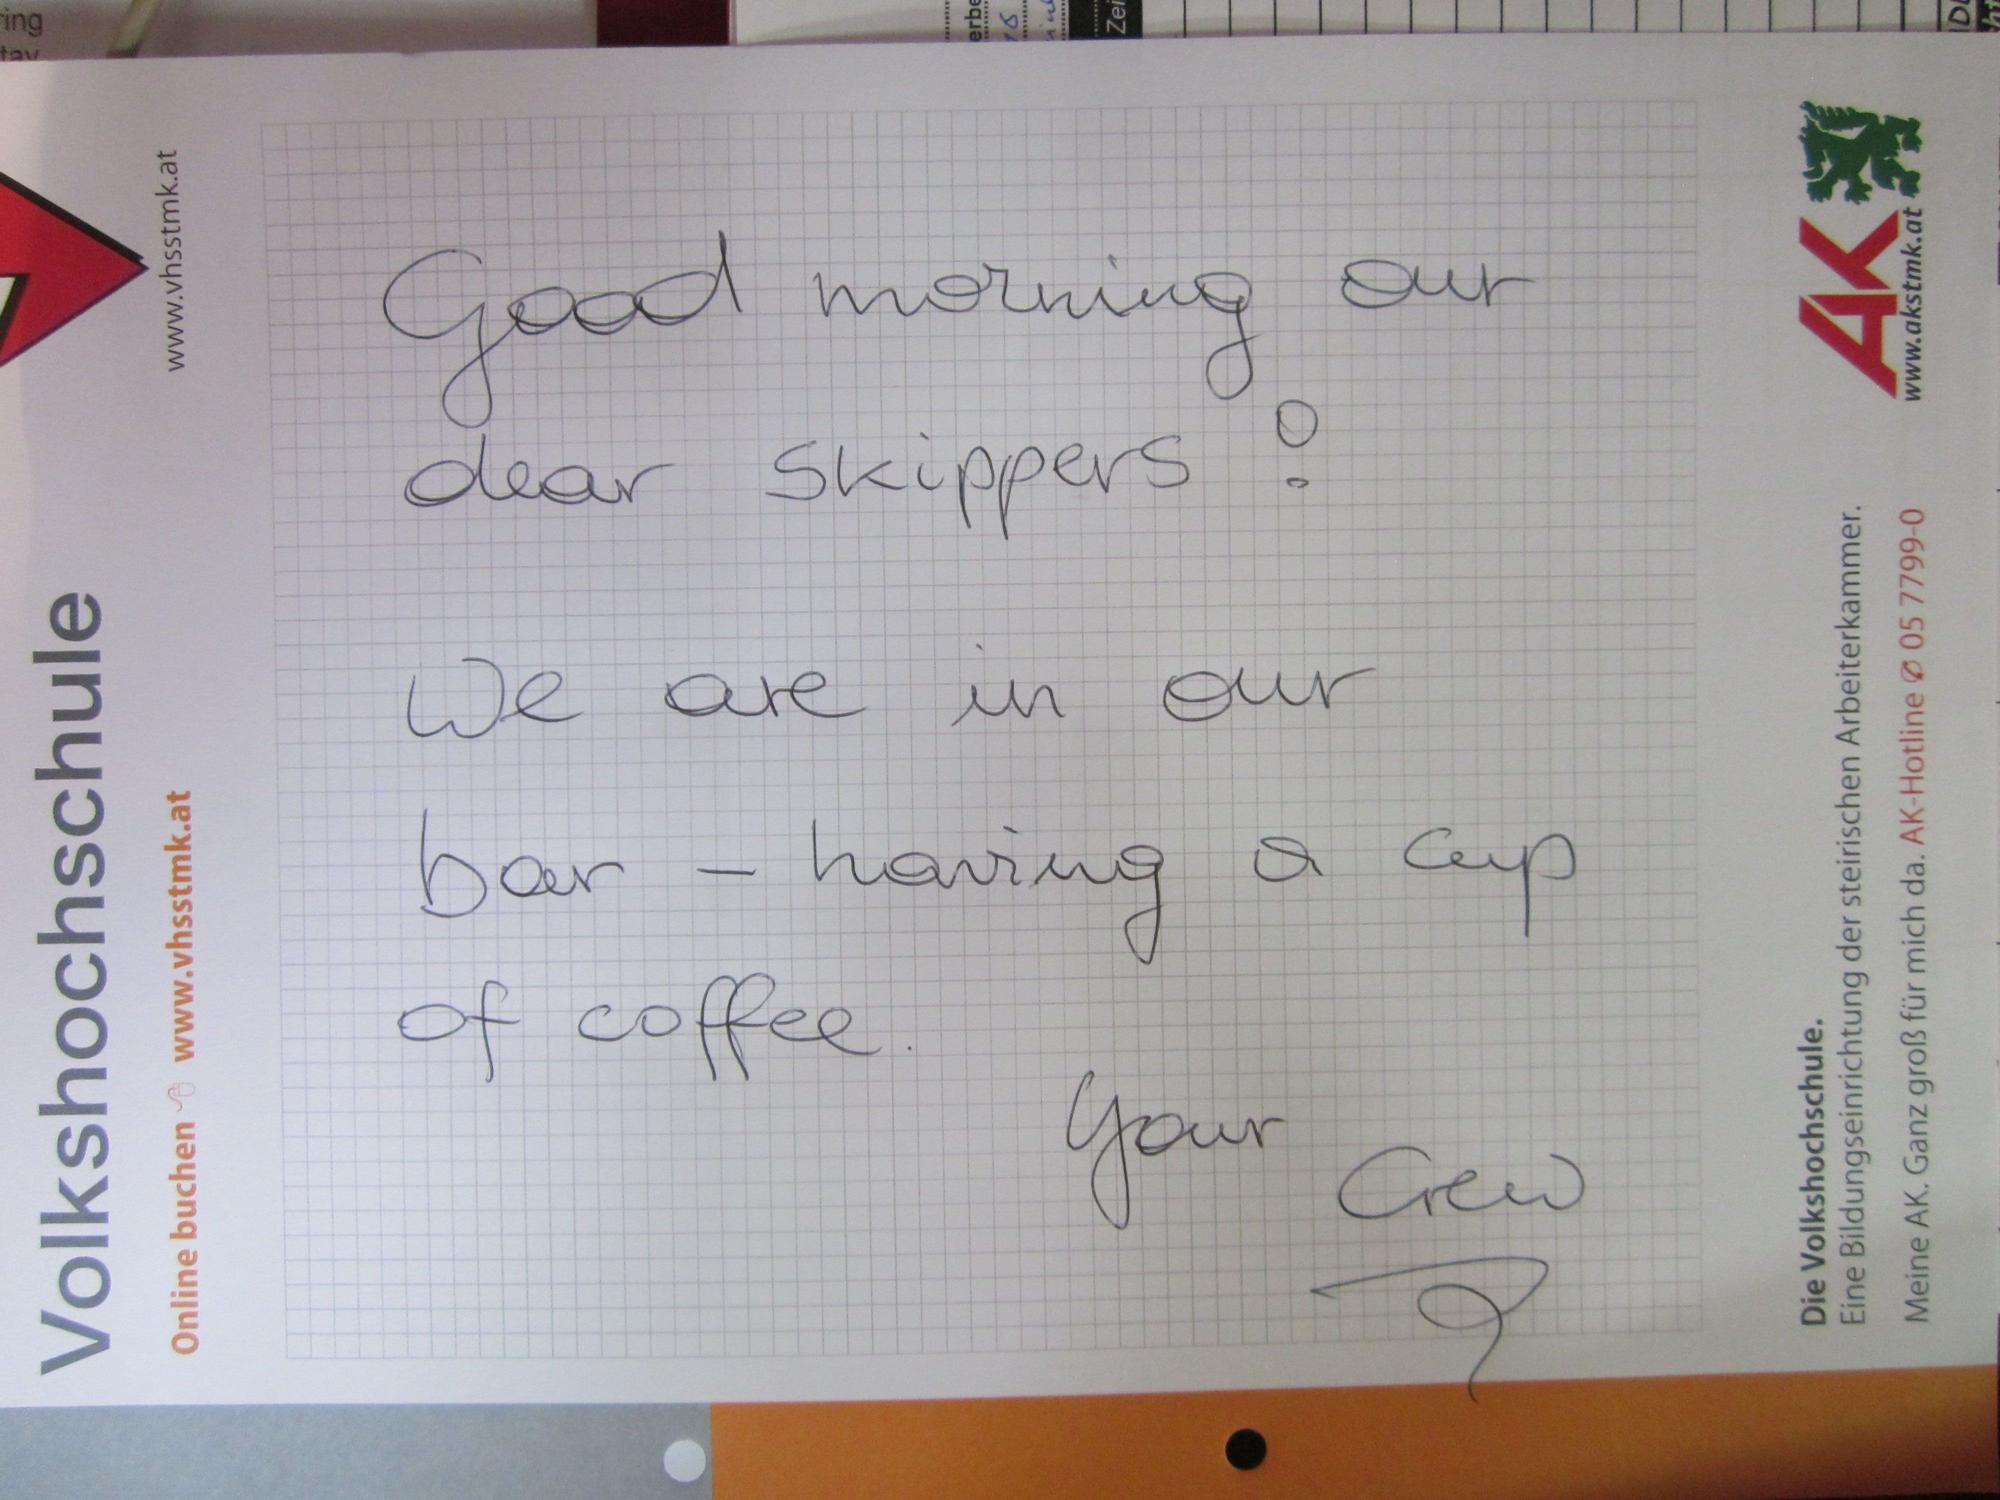 Good morning our
dear skippers!
We are in our
bar – having a cup
of coffee.
Your
Crew
Volkshochschule
Online buchen www.vhsstmk.at
www.vhsstmk.at
Die Volkshochschule.
Eine Bildungseinrichtung der steirischen Arbeiterkammer.
Meine AK. Ganz groß für mich da. AK-Hotline ✆ 05 7799-0
AK
www.akstmk.at
ring
tay
erbe
Zei